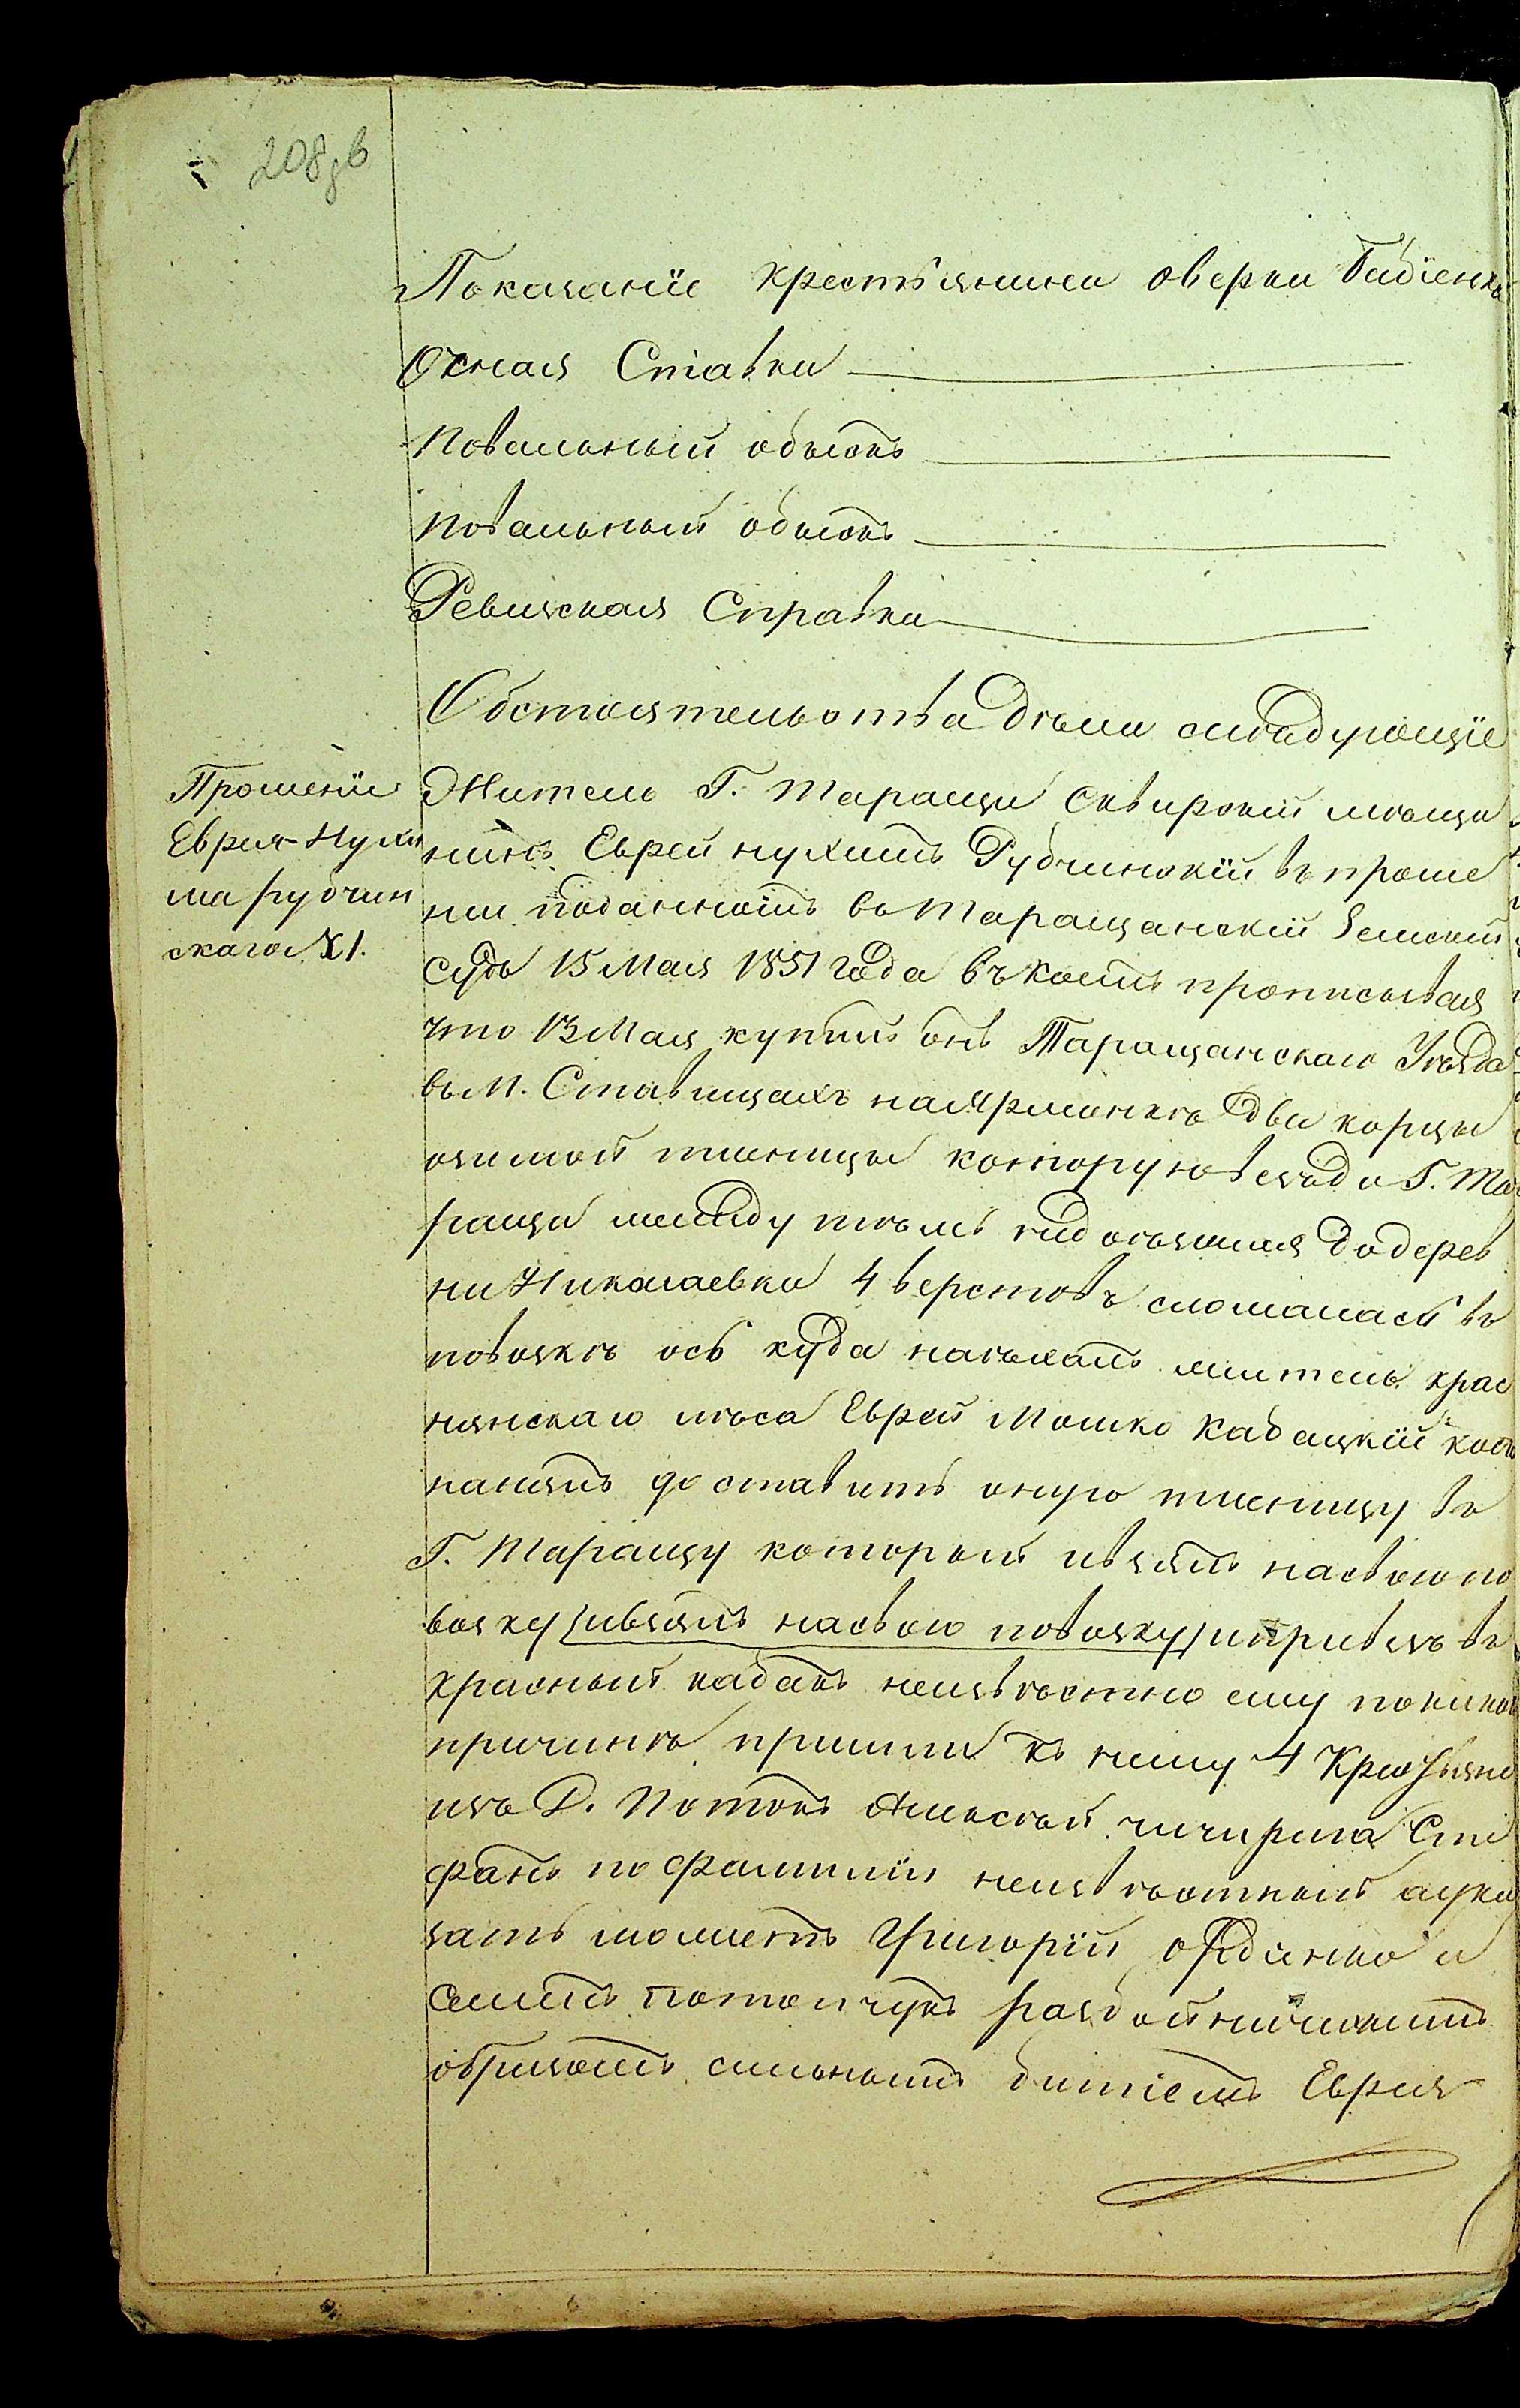 208 зв
Показаніе крестьянина Оверки Бабіенка
Очная Ставка
Повальный обыскъ
повальный обыскъ
Ревизская Справка
Обстоятельства дѣла слѣдующіе
Прошеніе
Еврея Нухи
ма рубчин
скаго
Житель Г. Таращи Сквирскій мѣща
нинъ Еврей нухимъ Рубчинскій въ проше
ніи поданномъ въ Таращанскій Земскій
судъ 15 Мая 1851 года въ коемъ прописывая
что 13 Мая купилъ онъ Таращанскаго Уѣзда
въ М. Ставищахъ на Ярмонкѣ два корцы
озимой пшеницы которую везъ до Г. Та
ращи между тѣмъ недоѣзжая до дерев
ни Николаевки 4 верстовъ сломалась въ
повозкѣ ось куда наѣхалъ житель крас
нянскаго лѣса Еврей Мошко Кабацкій коего
нанялъ доставить оную пшеницу въ
Г. Таращу который взялъ насвою по
возку (взялъ насвою повозку) и привезъ въ
красный кабакъ неизвѣстно ему покакой
причинѣ пришли къ нему 4 Крестьяне
изъ Д. Потокъ Алексѣй чичирка Сте
фанъ по фамиліи неизвѣстный
Григорій и
Семенъ потопчукъ
образомъ сильнымъ битіемъ Еврея